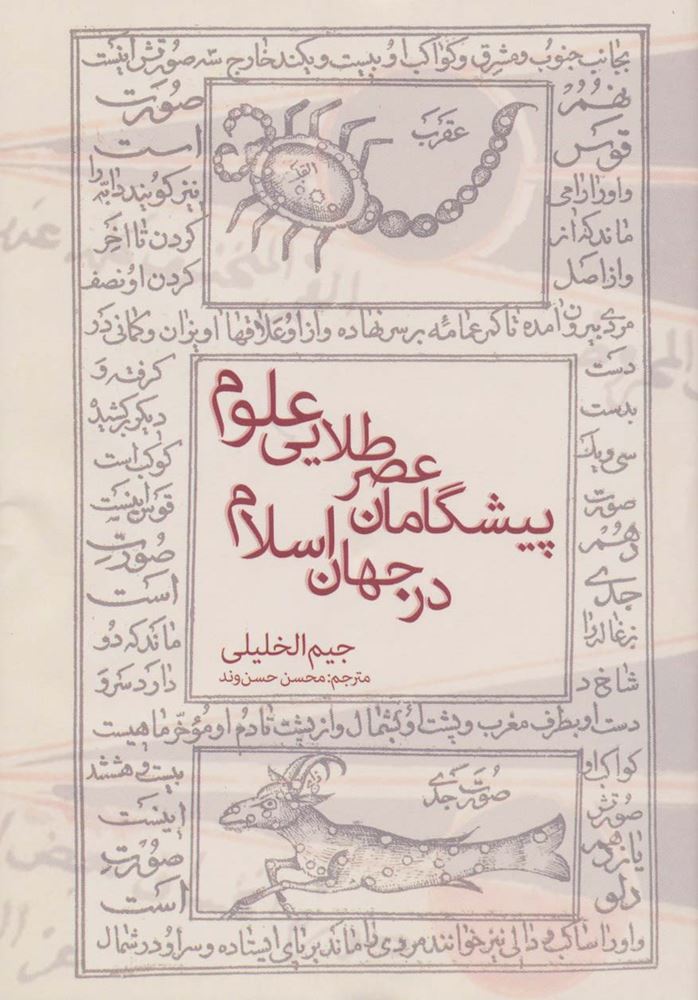 بجانب جنوب ومشرق وکواکب او بیست ویکند خارج سه صورتش اینست
نهم
صورت
قوس
است
عقرب
واو را رامی
نیز کویند دابه را
ماند که از
کردن تا آخر
واز اصل
کردن او نصف
مردی بیرون آمده تا کمر عمامه بر سر نهاده واز او علاقهها اویزان وکمانی در
دست
کرفته و
بدست
دیکر کشیده
سی ویک
کوکب است
صورت
قوس اینست
دهم
صورت
جدی
است
بزغاله را
ماند که دو
شاخ د
دارد سر و
پیشگامان عصر طلایی علوم
در جهان اسلام
جیم الخلیلی
مترجم: محسن حسن‌وند
دست او بطرف مغرب وپشت او بشمال واز پشت تا دم او مؤخر ماهیست
کواکب او
بیست وهشتند
صورتش
اینست
صورت جدی
یازدهم
صورت
دلو
است
واو را ساکب و دالی نیز خوانند مردی را ماند بر پای ایستاده وسر او در شمال